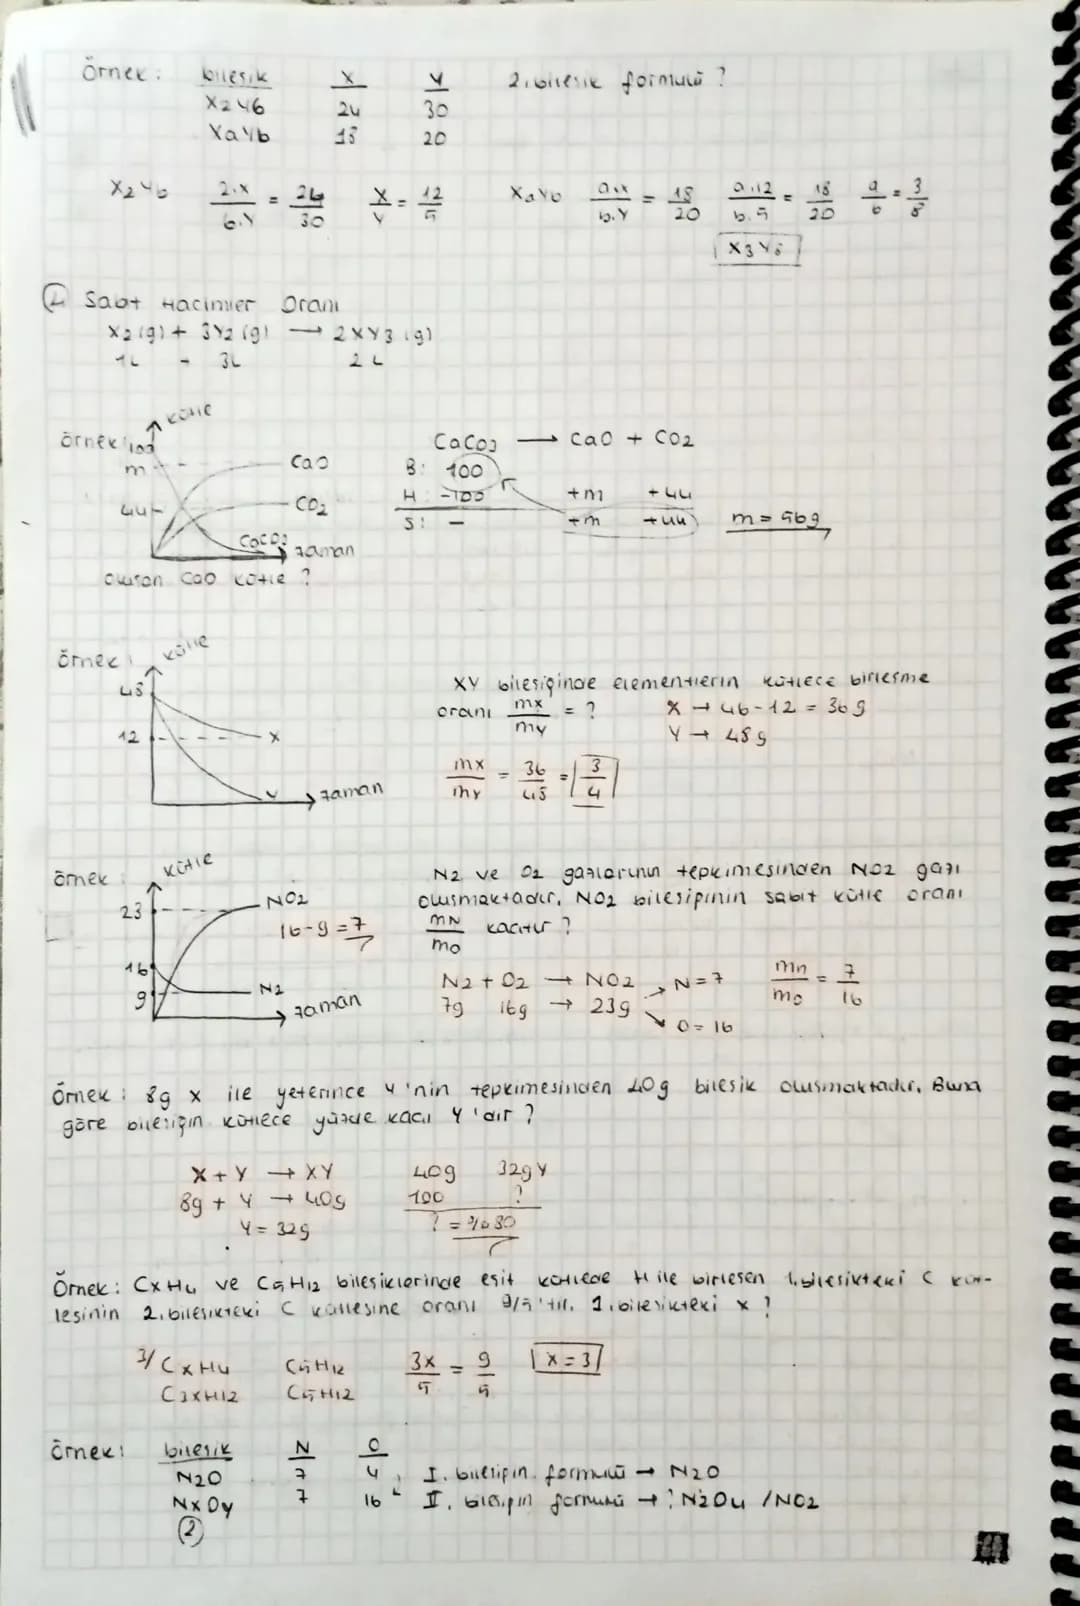 Örnek: bileşik X Y 2. bileşik formülü ?
X2Y6 24 30
XaYb 18 20
X2Y6 2.X/6.Y = 24/30 X/Y = 12/5 XaYb a.x/b.Y = 18/20 a.12/b.5 = 18/20 a/b = 3/8
X3Y8
Sabit Hacimler Oranı
X2(g) + 3Y2(g) → 2XY3(g)
1L - 3L 2L
Örnek: kütle
100
m
44
CaO
CO2
CaCO3 zaman
oluşan CaO kütle ?
CaCO3 → CaO + CO2
B: 100
H: -100 +m +44
S: - +m +44 m = 56g
Örnek: kütle
48
12
X
Y
zaman
XY bileşiğinde elementlerin kütlece birleşme
oranı mx/my = ? X → 46-12 = 36g
Y → 48g
mx/my = 36/48 = 3/4
örnek: kütle
23
16
9
NO2
16-9=7
N2
zaman
N2 ve O2 gazlarının tepkimesinden NO2 gazı
oluşmaktadır, NO2 bileşiğinin sabit kütle oranı
mN/mO kaçtır ?
N2 + O2 → NO2 → N=7 mn/mo = 7/16
7g 16g → 23g → O=16
Örnek: 8g x ile yeterince y'nin tepkimesinden 40g bileşik oluşmaktadır. Buna
göre bileşiğin kütlece yüzde kaçı Y'dir ?
X + Y → XY 40g 32g Y
8g + Y → 40g 100 ?
Y = 32g ? = %80
Örnek: CxH4 ve C5H12 bileşiklerinde eşit kütlede H ile birleşen 1. bileşikteki C küt-
lesinin 2. bileşikteki C kütlesine oranı 9/5'tir. 1. bileşikteki x ?
3/ CxH4 C5H12 3x/5 = 9/5 x=3
C3xH12 C5H12
Örnek: bileşik N O
N2O 7 4, I. bileşiğin formülü → N2O
NxOy 7 16 II. bileşiğin formülü → ? N2O4 /NO2
2